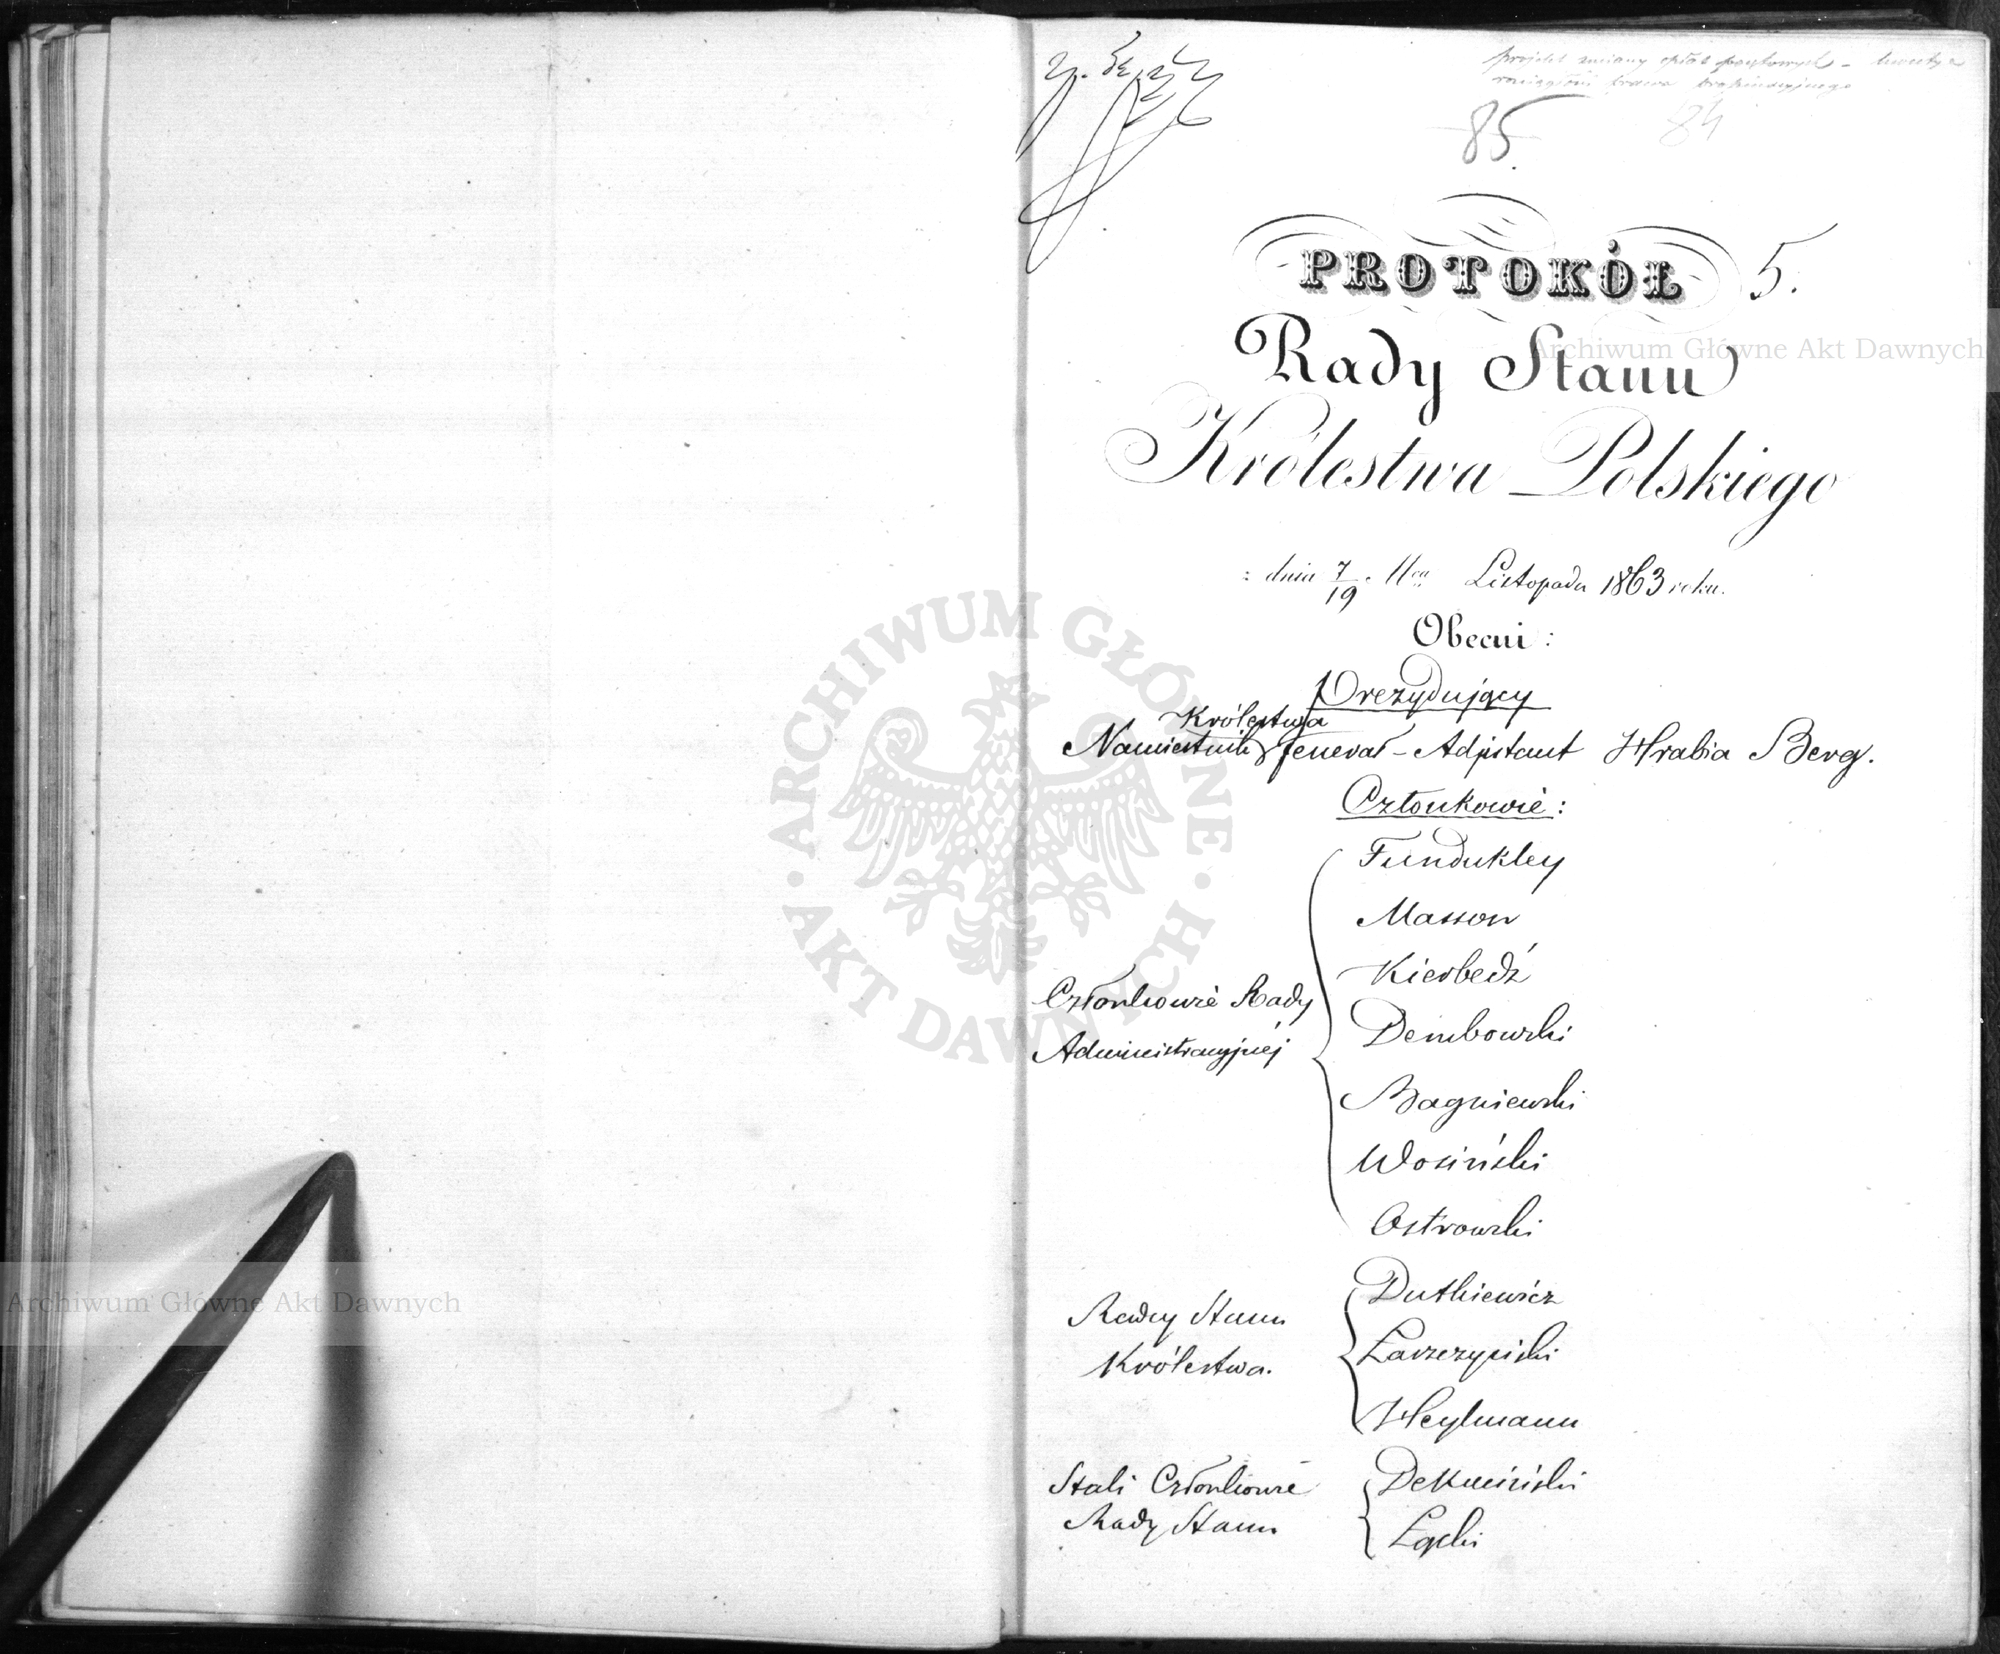 projekt zmiany opłat pocztowych – kwestya
prawa propinacyjnego
85.
84
PROTOKÓŁ 5.
Rady Stanu
Królestwa Polskiego
z dnia 7/19 Listopada 1863 roku.
Obecni:
Prezydujący
Królestwa
Namiestnik Jenerał-Adjutant Hrabia Berg.
Członkowie:
Fundukley
Masson
Kierbedź
Dembowski
Członkowie Rady
Administracyjnéj
Bagniewski
Wosiński
Ostrowski
Radcy Stanu
Królestwa.
Dutkiewicz
Łaszczyński
Heylmann
Stali Członkowie
Rady Stanu
Dekuciński
Łącki
ARCHIWUM GŁÓWNE AKT DAWNYCH
Archiwum Główne Akt Dawnych
Archiwum Główne Akt Dawnych